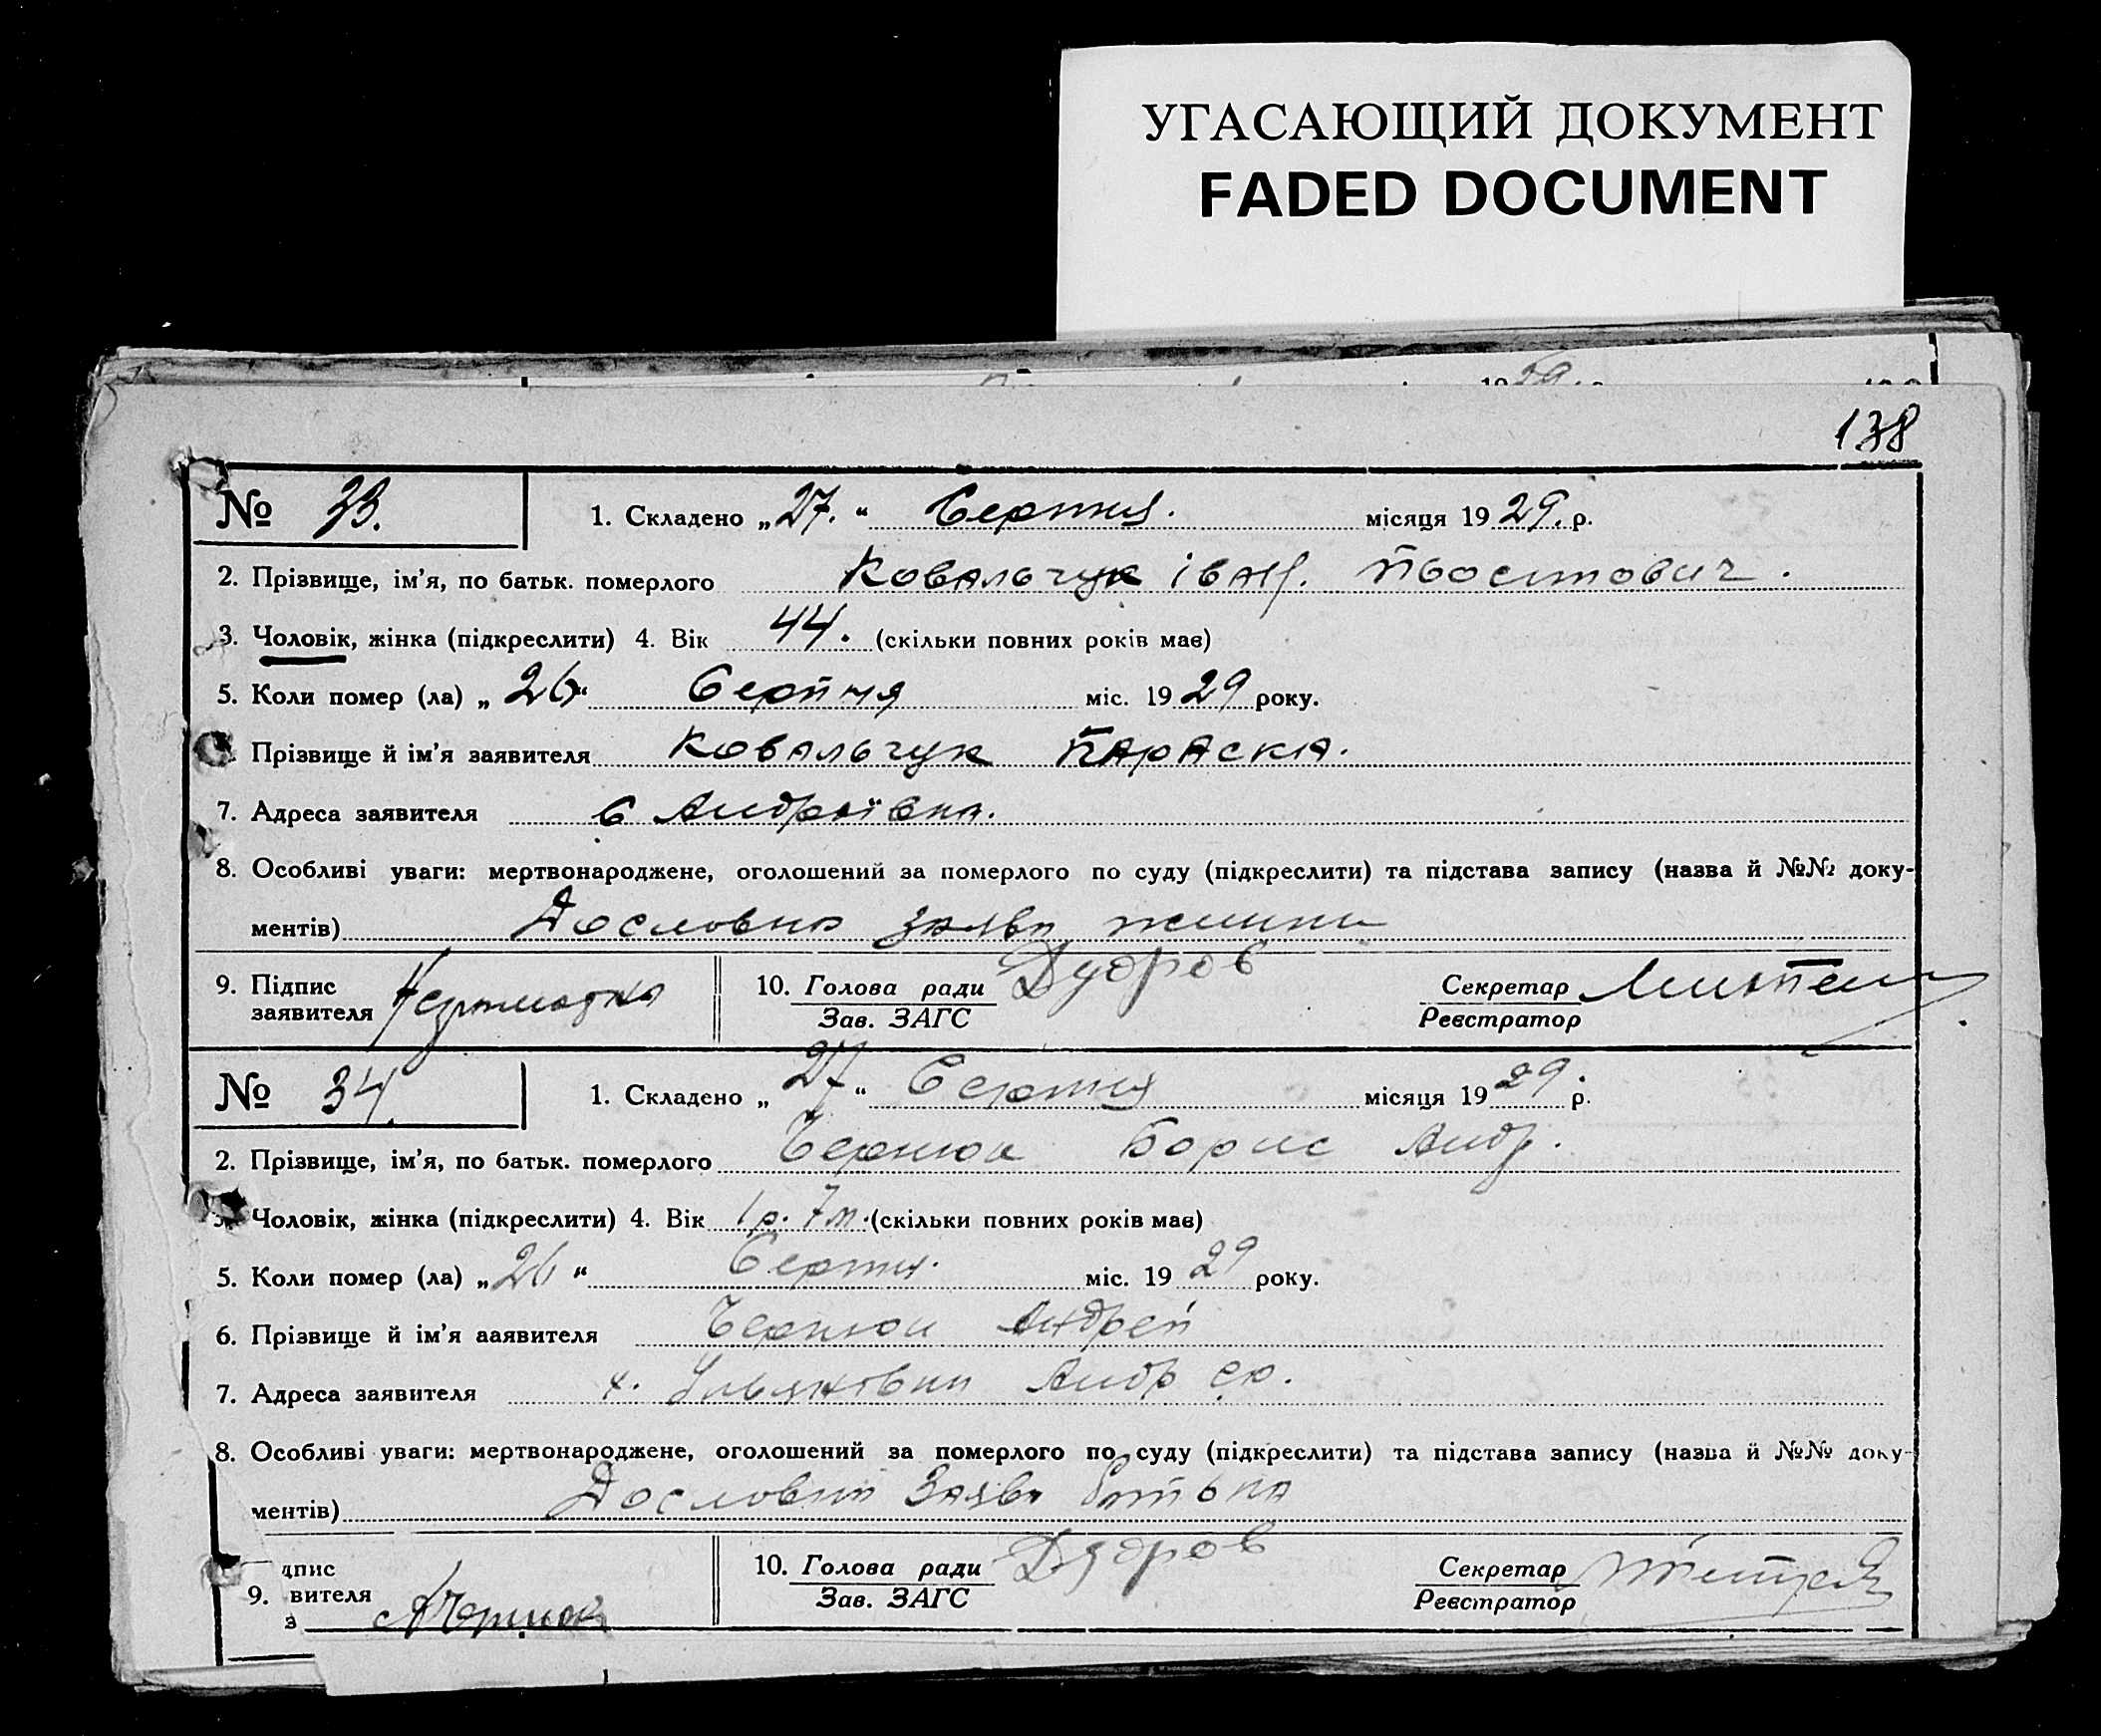 УГАСАЮЩИЙ ДОКУМЕНТ
FADED DOCUMENT
138
№ 33. 1. Складено „27.“ Серпня. місяця 1929. р.
2. Прізвище, ім'я, по батьк. померлого Ковальчук іван.
3. Чоловік, жінка (підкреслити) 4. Вік 44. (скільки повних років має)
5. Коли помер (ла) „26“ Серпня міс. 1929 року.
Прізвище й ім'я заявителя Ковальчук Параска.
7. Адреса заявителя с Андріївка.
8. Особливі уваги: мертвонароджене, оголошений за померлого по суду (підкреслити) та підстава запису (назва й №№ доку-
ментів) Дословна заява жинки
9. Підпис заявителя
10. Голова ради Дудров
Зав. ЗАГС
Секретар
Реєстратор
№ 34. 1. Складено „27“ Серпня місяця 1929. р.
2. Прізвище, ім'я, по батьк. померлого Чернюк Борис Андр.
Чоловік, жінка (підкреслити) 4. Вік 1 р. 7 м. (скільки повних років має)
5. Коли помер (ла) „26“ Серпня. міс. 1929 року.
6. Прізвище й ім'я ааявителя Чернюк Андрей
7. Адреса заявителя х. Андр с.р.
8. Особливі уваги: мертвонароджене, оголошений за померлого по суду (підкреслити) та підстава запису (назва й №№ доку-
ментів) Дословна Заява батька
9. дпис
вителя
з АЧернюк
10. Голова ради Дудров
Зав. ЗАГС
Секретар
Реєстратор